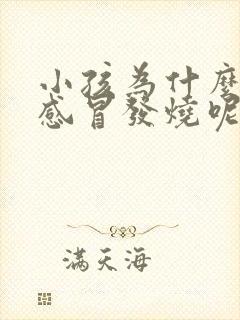 小孩為什麼
感冒發燒呢
滿天海